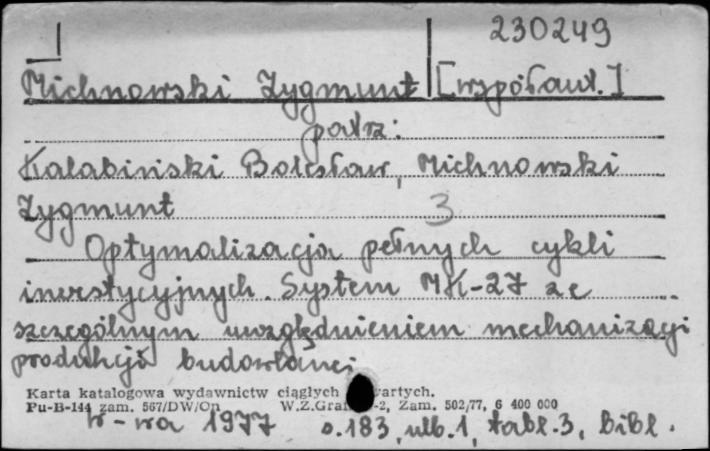 230249
Michnowski Zygmunt [współaut.]
patrz:
Kalabiński Bolesław, Michnowski
Zygmunt 3
Optymalizacja pełnych cykli
inwestycyjnych. System MK-27 ze
szczególnym uwzględnieniem mechanizacji
produkcji budowlanej
Karta katalogowa wydawnictw ciągłych wartych.
Pu-B-144 zam. 567/DW/On W.Z.Graf -2, Zam. 502/77, 6 400 000
W-wa 1977 s.183, nlb.1, tabl.3, bibl.